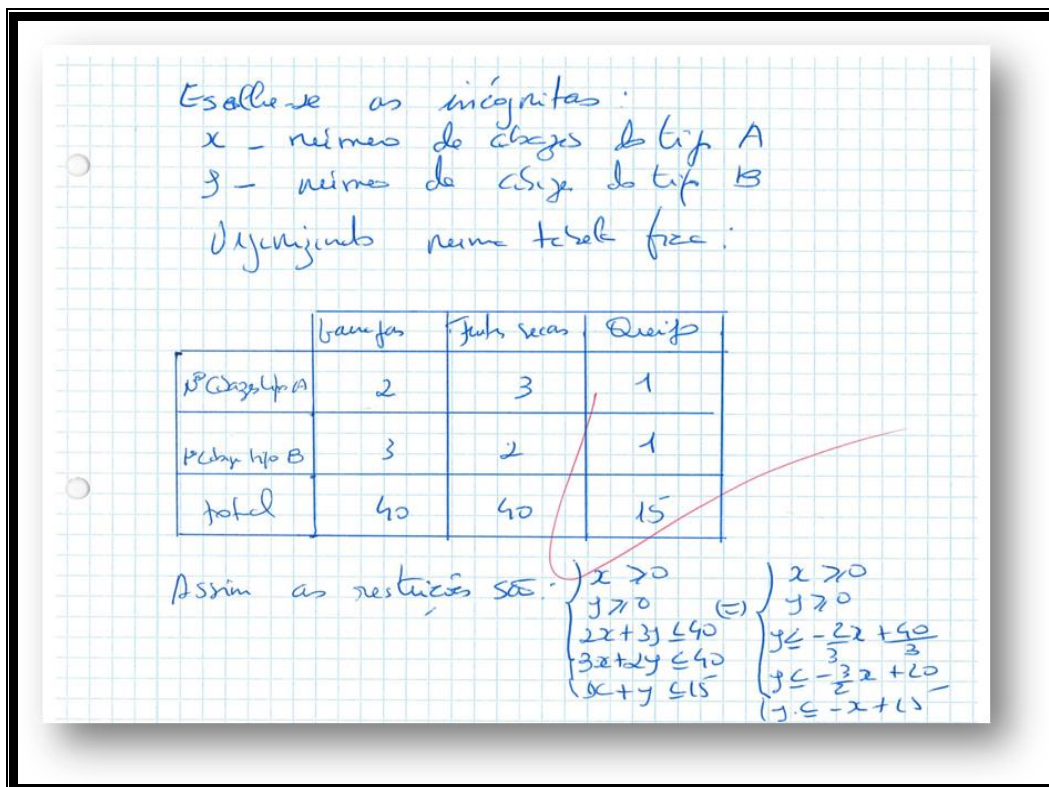 Escolhe-se as incógnitas:
x - número de cabazes do tipo A
y - número de cabazes do tipo B
Organizando numa tabela fica:
Garrafas Frutos secas Queijo
Nº Cabazes tipo A 2 3 1
Nº Cabaz tipo B 3 2 1
total 40 40 15
Assim as restrições são: { x ≥ 0 (=) { x ≥ 0
y ≥ 0 y ≥ 0
2x + 3y ≤ 40 y ≤ -2/3 x + 40/3
3x + 2y ≤ 40 y ≤ -3/2 x + 20
x + y ≤ 15 y ≤ -x + 15